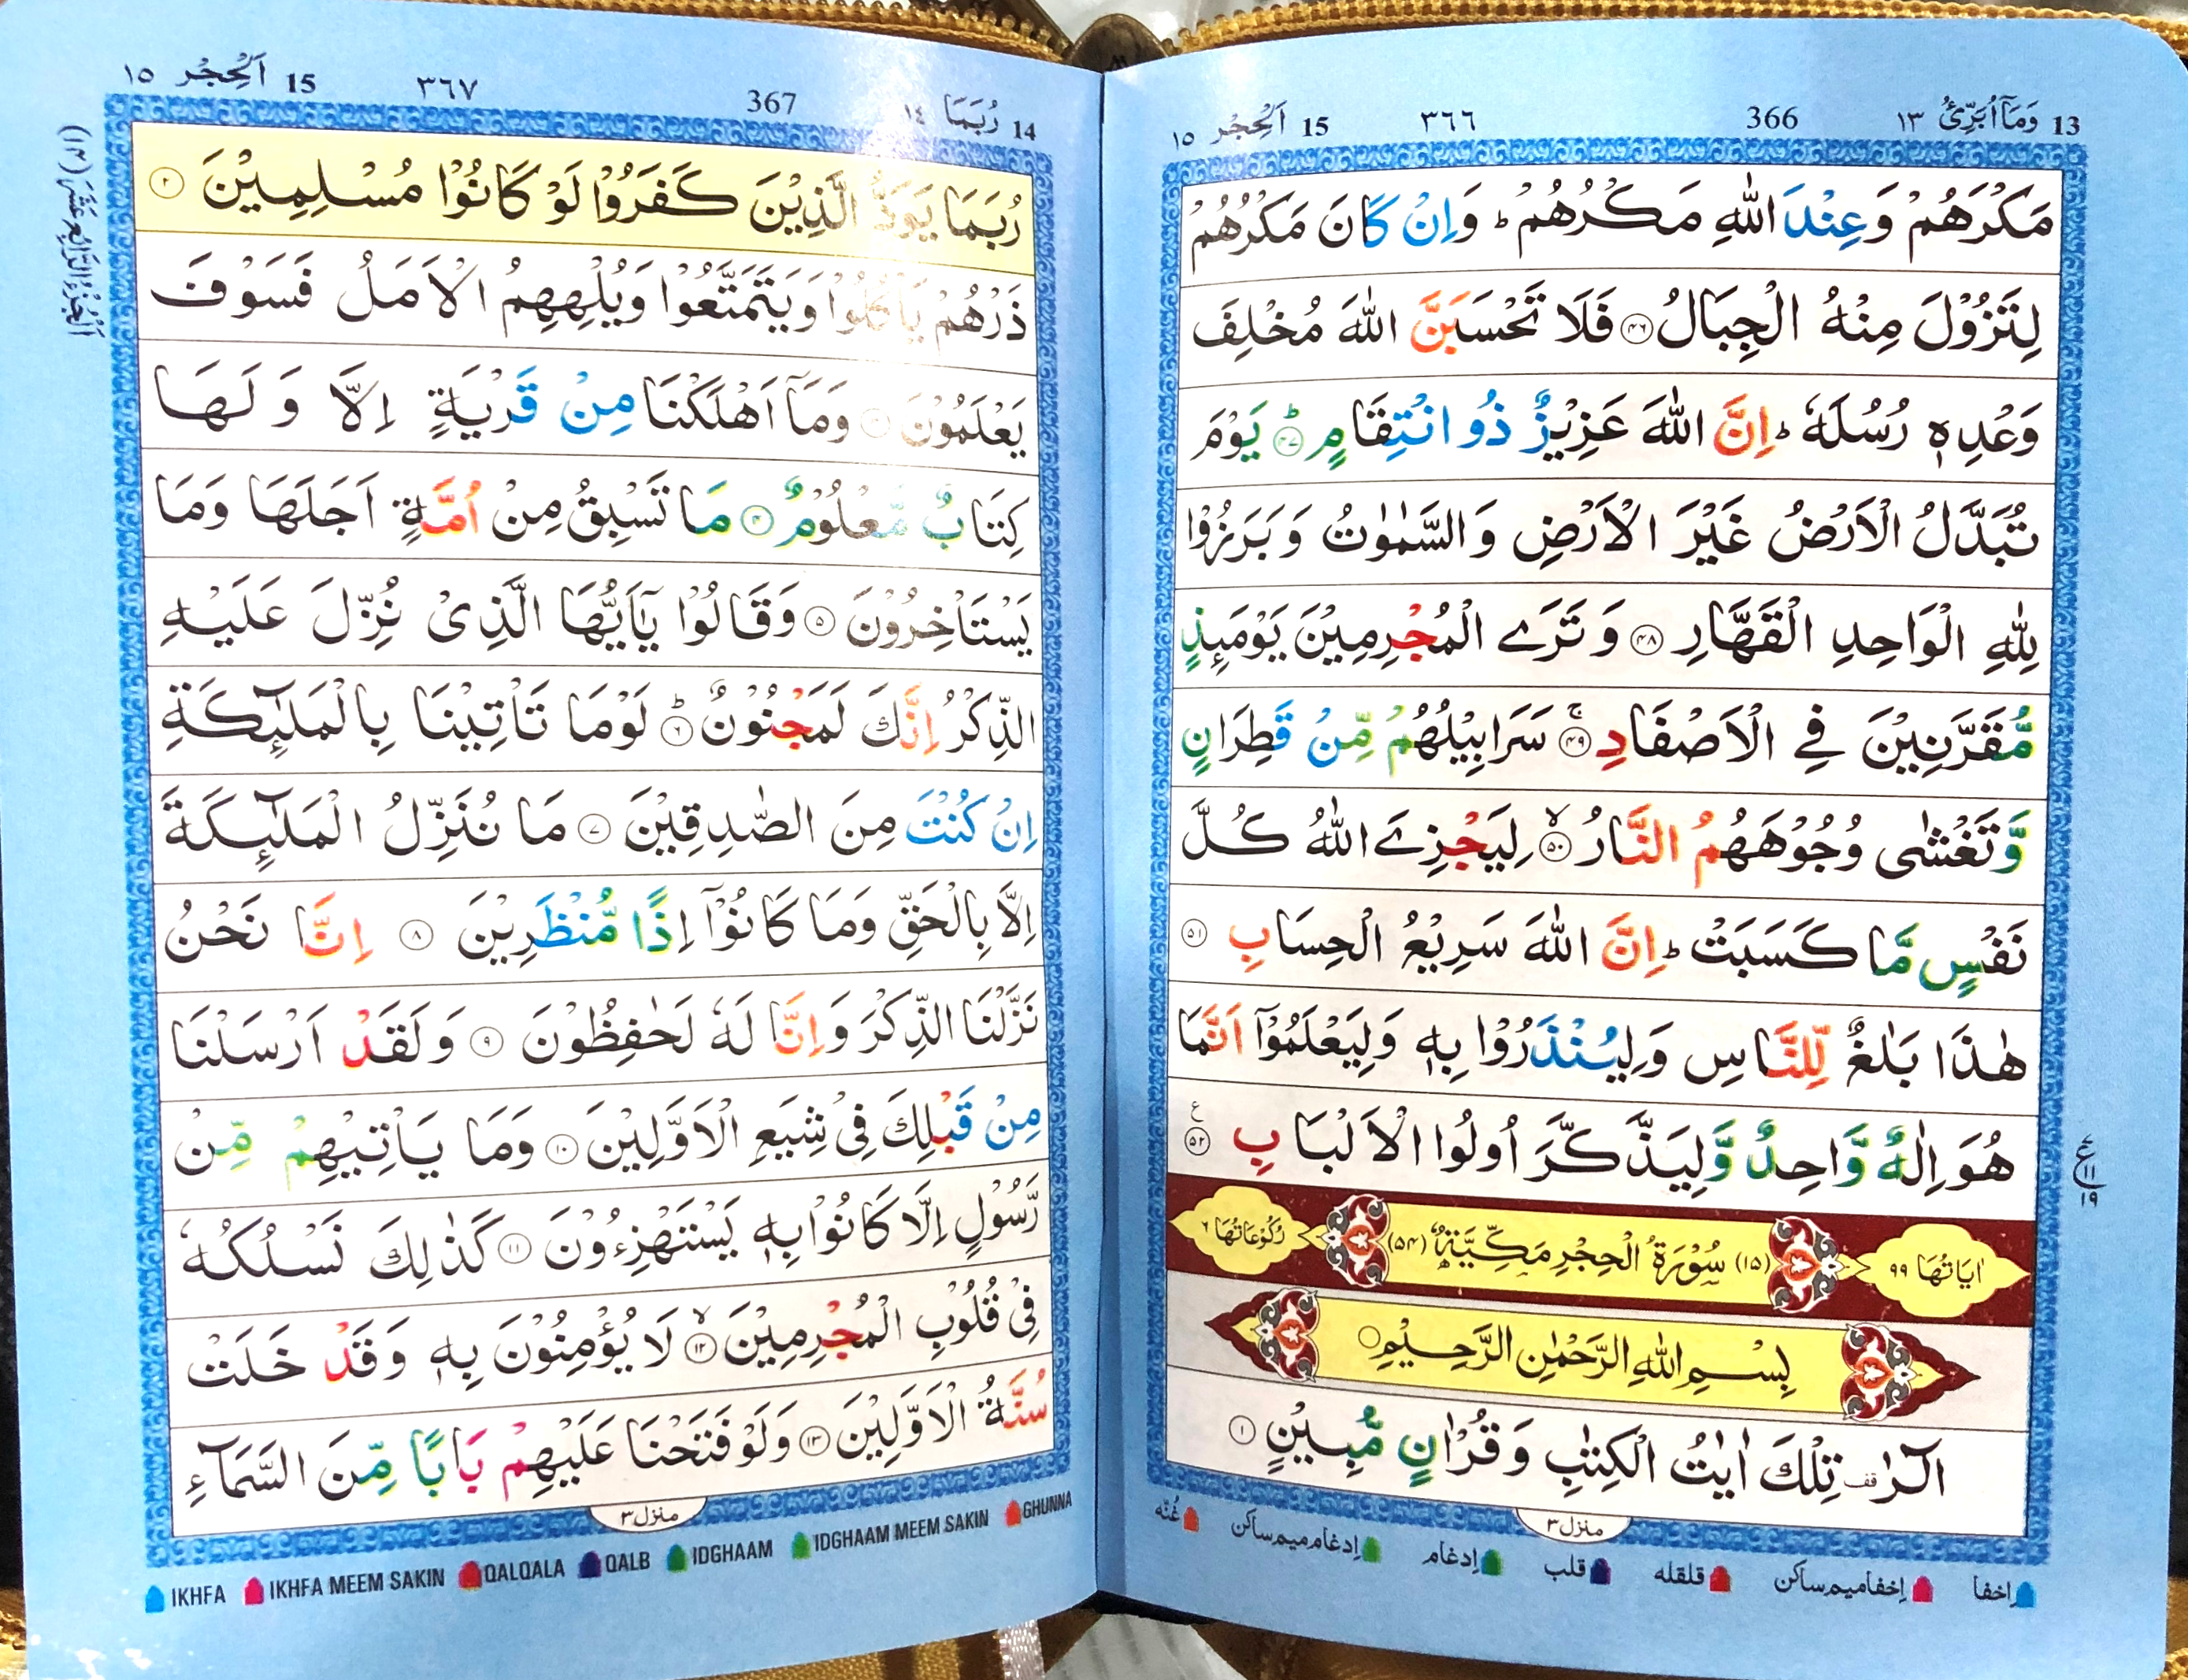 13 وَمَاۤ اُبَرِّئُ ١٣ 366 ٣٦٦ 15 اَلْحِجْر ١٥
مَكْرَهُمْ وَعِنْدَ اللّٰهِ مَكْرُهُمْ ؕ وَاِنْ كَانَ مَكْرُهُمْ
لِتَزُوْلَ مِنْهُ الْجِبَالُ ﴿۴۶﴾ فَلَا تَحْسَبَنَّ اللّٰهَ مُخْلِفَ
وَعْدِهٖ رُسُلَهٗ ؕ اِنَّ اللّٰهَ عَزِيْزٌ ذُو انْتِقَامٍ ؕ﴿۴۷﴾ يَوْمَ
تُبَدَّلُ الْاَرْضُ غَيْرَ الْاَرْضِ وَالسَّمٰوٰتُ وَبَرَزُوْا
لِلّٰهِ الْوَاحِدِ الْقَهَّارِ ﴿۴۸﴾ وَتَرَے الْمُجْرِمِيْنَ يَوْمَىِٕذٍ
مُّقَرَّنِيْنَ فِے الْاَصْفَادِ ۚ﴿۴۹﴾ سَرَابِيْلُهُمْ مِّنْ قَطِرَانٍ
وَّتَغْشٰى وُجُوْهَهُمُ النَّارُ ۙ﴿۵۰﴾ لِيَجْزِےَ اللّٰهُ كُلَّ
نَفْسٍ مَّا كَسَبَتْ ؕ اِنَّ اللّٰهَ سَرِيْعُ الْحِسَابِ ﴿۵۱﴾
هٰذَا بَلٰغٌ لِّلنَّاسِ وَلِيُنْذَرُوْا بِهٖ وَلِيَعْلَمُوْۤا اَنَّمَا
هُوَ اِلٰهٌ وَّاحِدٌ وَّلِيَذَّكَّرَ اُولُوا الْاَلْبَابِ ﴿۵۲﴾ ع
ع ١١ ١٩
اٰيَاتُهَا ٩٩ (١٥) سُوْرَةُ الْحِجْرِ مَكِّيَّةٌ (۵۴) رُكُوْعَاتُهَا ٦
بِسْمِ اللّٰهِ الرَّحْمٰنِ الرَّحِيْمِ
الٓرٰ قف تِلْكَ اٰيٰتُ الْكِتٰبِ وَقُرْاٰنٍ مُّبِيْنٍ ﴿۱﴾
منزل ٣
اِخفا اِخفا ميم ساكن قلقله قلب اِدغام اِدغام ميم ساكن غُنّه
14 رُبَمَا ١٤ 367 ٣٦٧ 15 اَلْحِجْر ١٥
اَلْجُزْءُ الرَّابِعُ عَشَرَ (١٤)
رُبَمَا يَوَدُّ الَّذِيْنَ كَفَرُوْا لَوْ كَانُوْا مُسْلِمِيْنَ ﴿۲﴾
ذَرْهُمْ يَاْكُلُوْا وَيَتَمَتَّعُوْا وَيُلْهِهِمُ الْاَمَلُ فَسَوْفَ
يَعْلَمُوْنَ ﴿۳﴾ وَمَاۤ اَهْلَكْنَا مِنْ قَرْيَةٍ اِلَّا وَلَهَا
كِتَابٌ مَّعْلُوْمٌ ﴿۴﴾ مَا تَسْبِقُ مِنْ اُمَّةٍ اَجَلَهَا وَمَا
يَسْتَاْخِرُوْنَ ﴿۵﴾ وَقَالُوْا يٰۤاَيُّهَا الَّذِىْ نُزِّلَ عَلَيْهِ
الذِّكْرُ اِنَّكَ لَمَجْنُوْنٌ ؕ﴿۶﴾ لَوْمَا تَاْتِيْنَا بِالْمَلٰٓىِٕكَةِ
اِنْ كُنْتَ مِنَ الصّٰدِقِيْنَ ﴿۷﴾ مَا نُنَزِّلُ الْمَلٰٓىِٕكَةَ
اِلَّا بِالْحَقِّ وَمَا كَانُوْۤا اِذًا مُّنْظَرِيْنَ ﴿۸﴾ اِنَّا نَحْنُ
نَزَّلْنَا الذِّكْرَ وَاِنَّا لَهٗ لَحٰفِظُوْنَ ﴿۹﴾ وَلَقَدْ اَرْسَلْنَا
مِنْ قَبْلِكَ فِىْ شِيَعِ الْاَوَّلِيْنَ ﴿۱۰﴾ وَمَا يَاْتِيْهِمْ مِّنْ
رَّسُوْلٍ اِلَّا كَانُوْا بِهٖ يَسْتَهْزِءُوْنَ ﴿۱۱﴾ كَذٰلِكَ نَسْلُكُهٗ
فِىْ قُلُوْبِ الْمُجْرِمِيْنَ ۙ﴿۱۲﴾ لَا يُؤْمِنُوْنَ بِهٖ وَقَدْ خَلَتْ
سُنَّةُ الْاَوَّلِيْنَ ﴿۱۳﴾ وَلَوْ فَتَحْنَا عَلَيْهِمْ بَابًا مِّنَ السَّمَآءِ
منزل ٣
IKHFA IKHFA MEEM SAKIN QALQALA QALB IDGHAAM IDGHAAM MEEM SAKIN GHUNNA